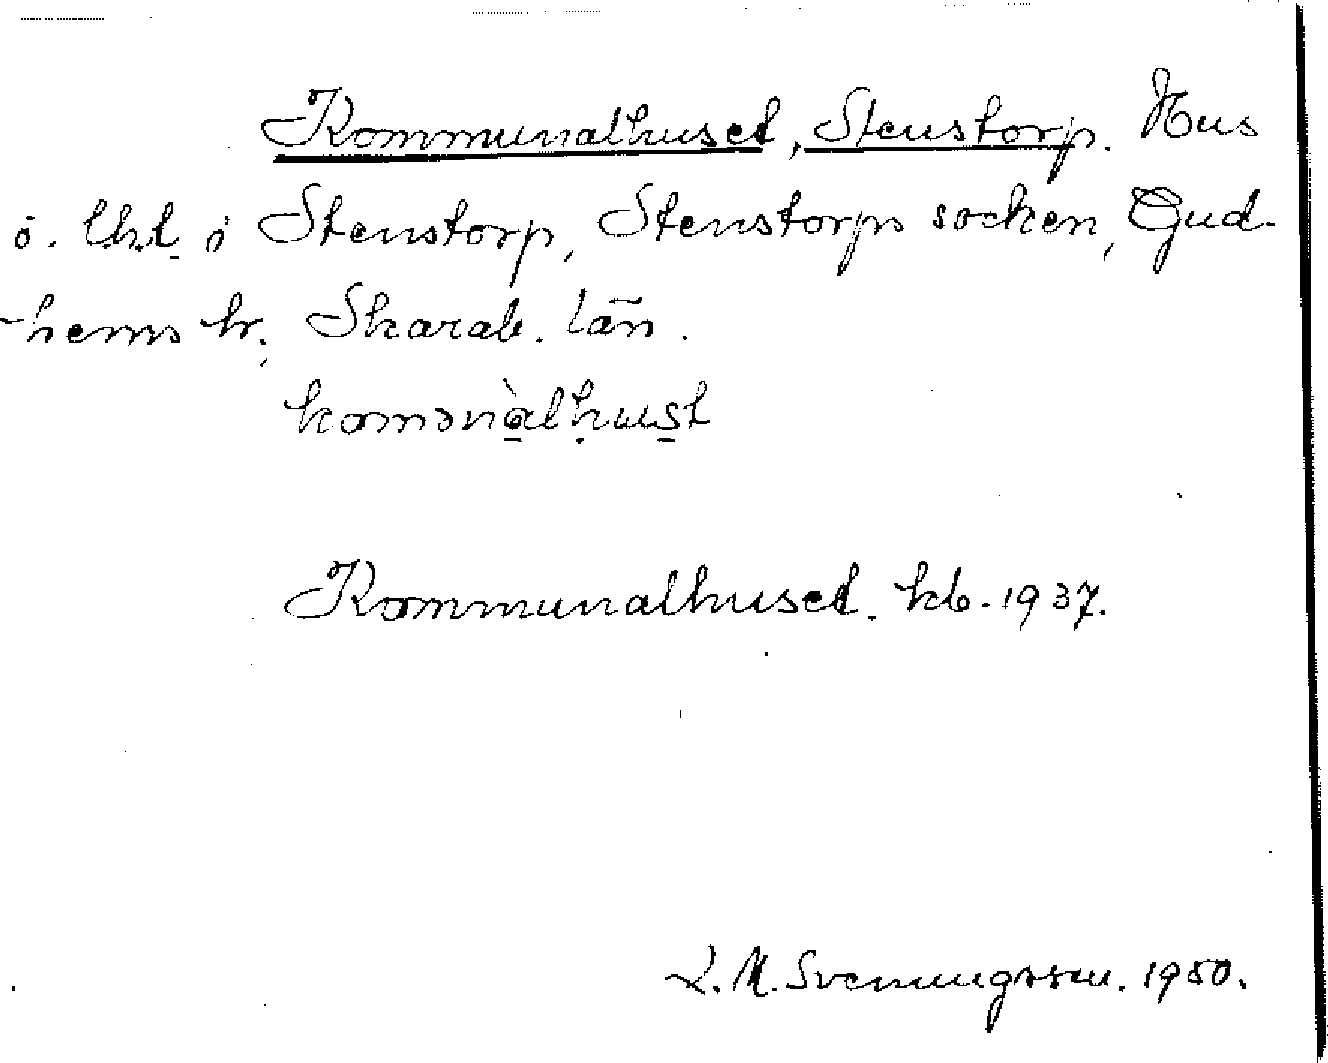 Kommunalhuset, Stenstorp. Hus
o. lht i Stenstorp, Stenstorps socken, Gud-
hems hr, Skarab. län.
komɔnàlhust
Kommunalhuset. kb. 1937.
L. M. Svenungsson. 1950.